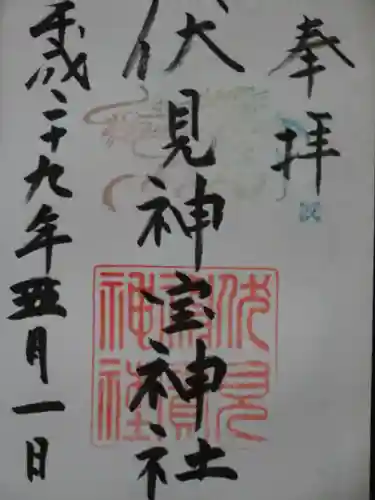 奉拝
伏見神宝神社
平成二十九年五月一日
伏見
神寳
神社